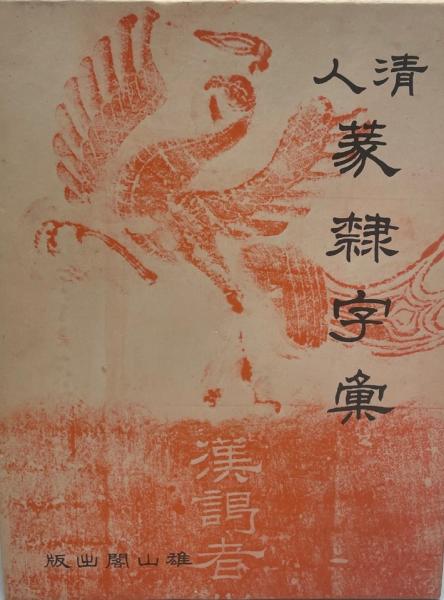 清人
篆隷字彙
漢謁者
雄山閣出版